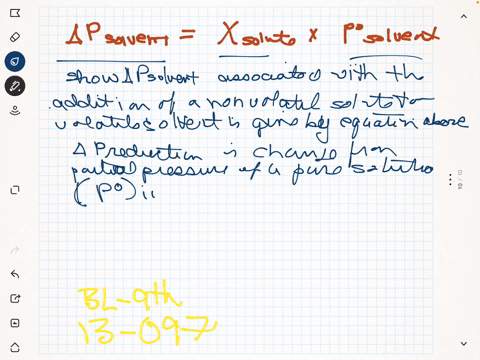 ΔPsolvent = Xsolute × P°solvent
show ΔPsolvent associated with the
addition of a nonvolatil solute to
volatile solvent is give by equation above
Δ P is change from
partial pressure of a pure
(P°) i
BL-9th
13-097